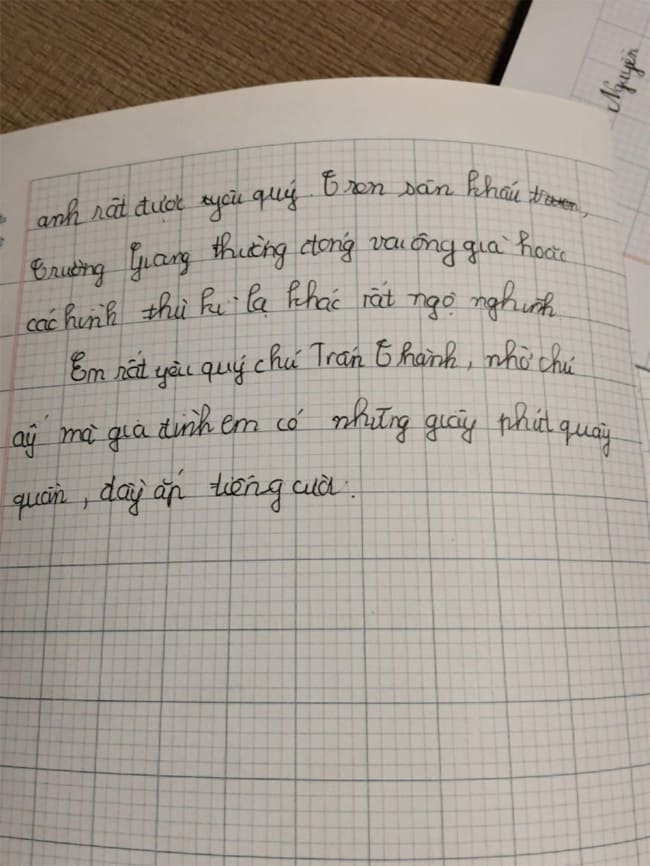 Nguyên
anh rất được yêu quý. Trên sân khấu,
Trường Giang thường đóng vai ông già hoặc
các hình thù kì lạ khác rất ngộ nghĩnh.
Em rất yêu quý chú Trấn Thành, nhờ chú
ấy mà gia đình em có những giây phút quây
quần, đầy ắp tiếng cười.